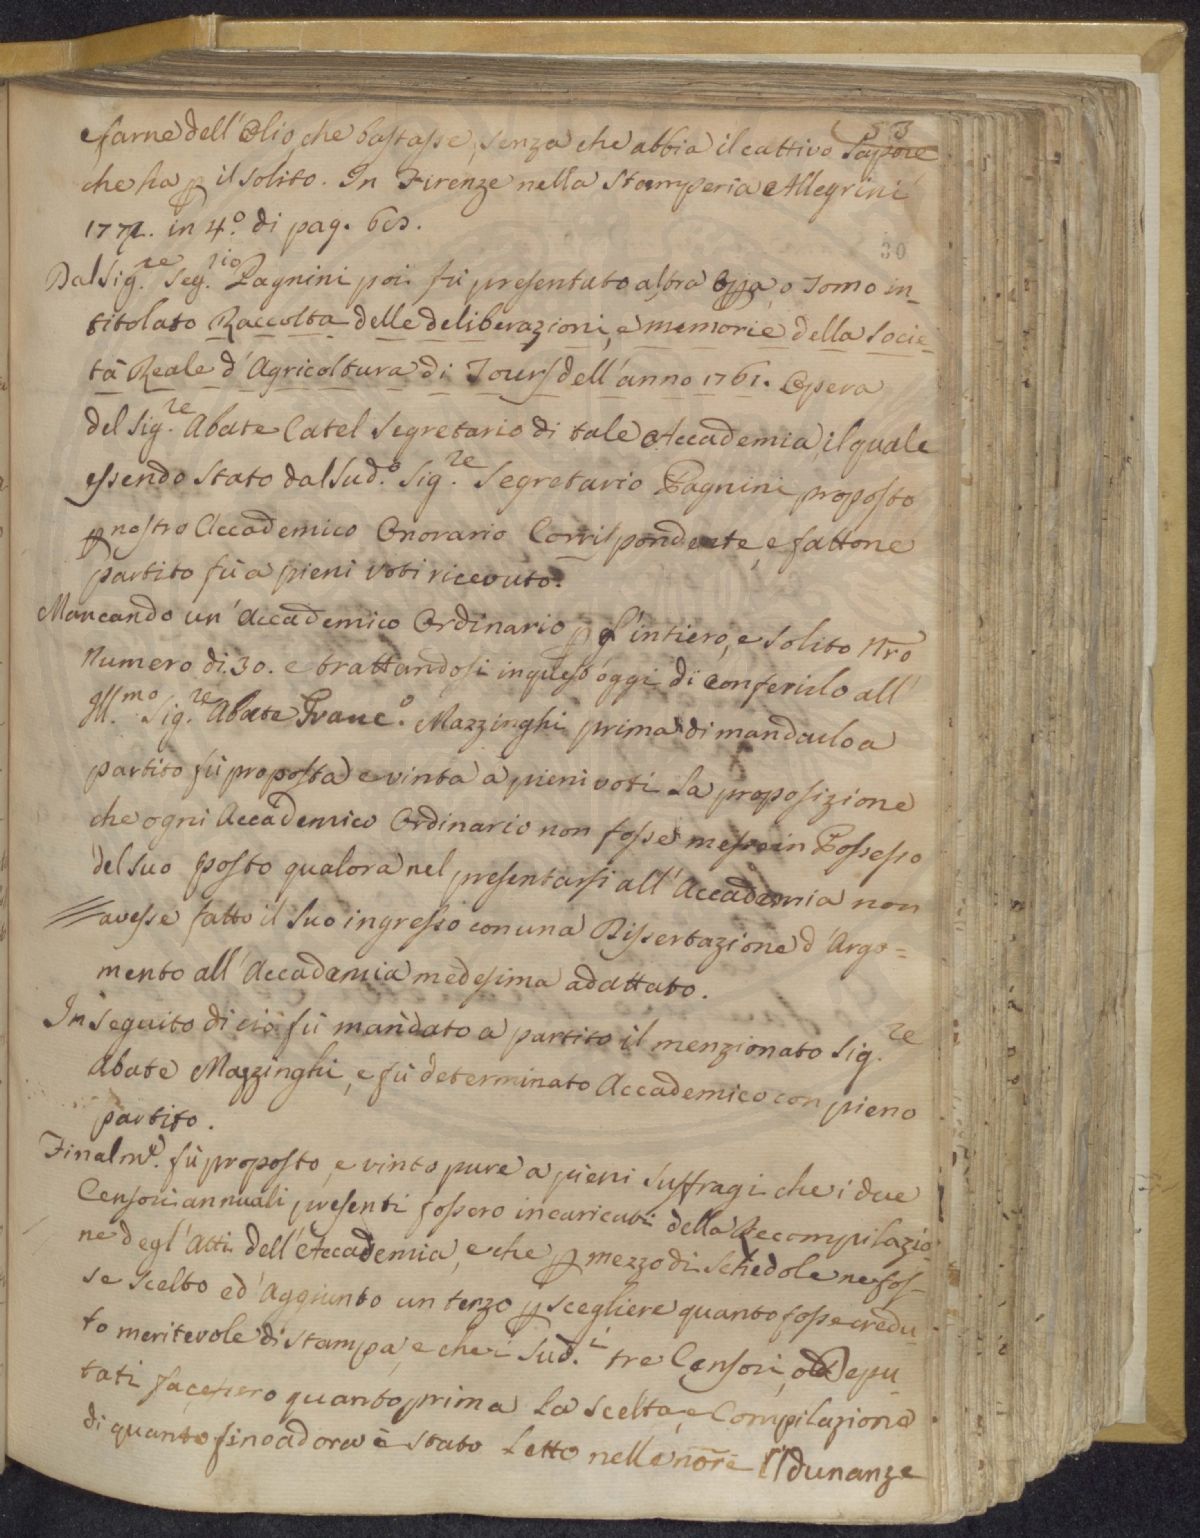 53
e farne dell'Olio che bastasse, senza che abbia il cattivo Sapore
che ha p il solito. In Firenze nella Stamperia Allegrini
1772. in 4.º di pag.
30
Dal Sig.re Seg.rio Pagnini poi fù presentato altra Oppa, o Tomo in-
titolato Raccolta delle deliberazioni, e memorie della Socie-
tà Reale d'Agricoltura di Tours dell'anno 1761. Opera
del Sig.re Abate Catel Segretario di tale Accademia, il quale
essendo stato dal Sud.º Sig.re Segretario Pagnini proposto
p nostro Accademico Onorario Corrispondente, e fattone
partito fù a pieni voti ricevuto.
Mancando un'Accademico Ordinario p l'intiero, e solito Nrõ
Numero di 30. e trattandosi in questo oggi di conferirlo all'
Ill.mo Sig.re Abate Franc.º Mazzinghi prima di mandarlo a
partito fù proposta e vinta a pieni voti la proposizione
che ogni Accademico Ordinario non fosse messo in Possesso
del suo posto qualora nel presentarsi all'Accademia non
avesse fatto il suo ingresso con una Dissertazione d'Argo=
mento all'Accademia medesima adattato.
In seguito di ciò fù mandato a partito il menzionato Sig.re
Abate Mazzinghi, e fù determinato Accademico con pieno
partito.
Finalm.e fù proposto, e vinto pure a pieni Suffragi che i due
Censori annuali presenti fossero incaricati della Recompilazio-
ne degl'Atti dell'Accademia, e che p mezzo di Schedole ne fos-
se scelto ed'Aggiunto un terzo p scegliere quanto fosse credu-
to meritevole di stampa, e che i Sud.i tre Censori, o Depu-
tati facessero quanto prima la scelta, e Compilazione
di quanto fino ad ora è stato Letto nelle nõre Adunanze